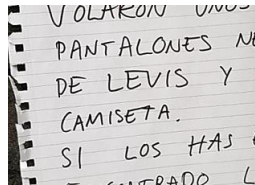 VOLARON UNOS
PANTALONES
DE LEVIS Y
CAMISETA.
SI LOS HAS